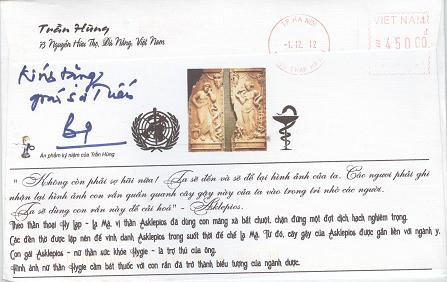 Trần Hùng
73 Nguyễn Hữu Thọ, Đà Nẵng, Việt Nam
TP. HA NOI
-1.12.12
VIET NAM
đ
45000
Kính tặng
Ấn phẩm kỷ niệm của Trần Hùng
" Không còn phải sợ hãi nữa! Ta sẽ đến và sẽ để lại hình ảnh của ta. Các ngươi phải ghi
nhận lại hình ảnh con rắn quấn quanh cây gậy này của ta vào trong trí nhớ các ngươi.
Ta sẽ dùng con rắn này để cải hoá" - Asklepios.
Theo thần thoại Hy Lạp - La Mã, vị thần Asklepios đã dùng con mãng xà bắt chuột, chặn đứng một đợt dịch hạch nghiêm trọng.
Các đền thờ được lập nên để vinh danh Asklepios trong suốt thời đế chế La Mã. Từ đó, cây gậy của Asklepios được gắn liền với ngành y.
Con gái Asklepios - nữ thần sức khỏe Hygie - là trợ thủ của ông.
Hình ảnh nữ thần Hygie cầm bát thuốc với con rắn đã trở thành biểu tượng của ngành dược.